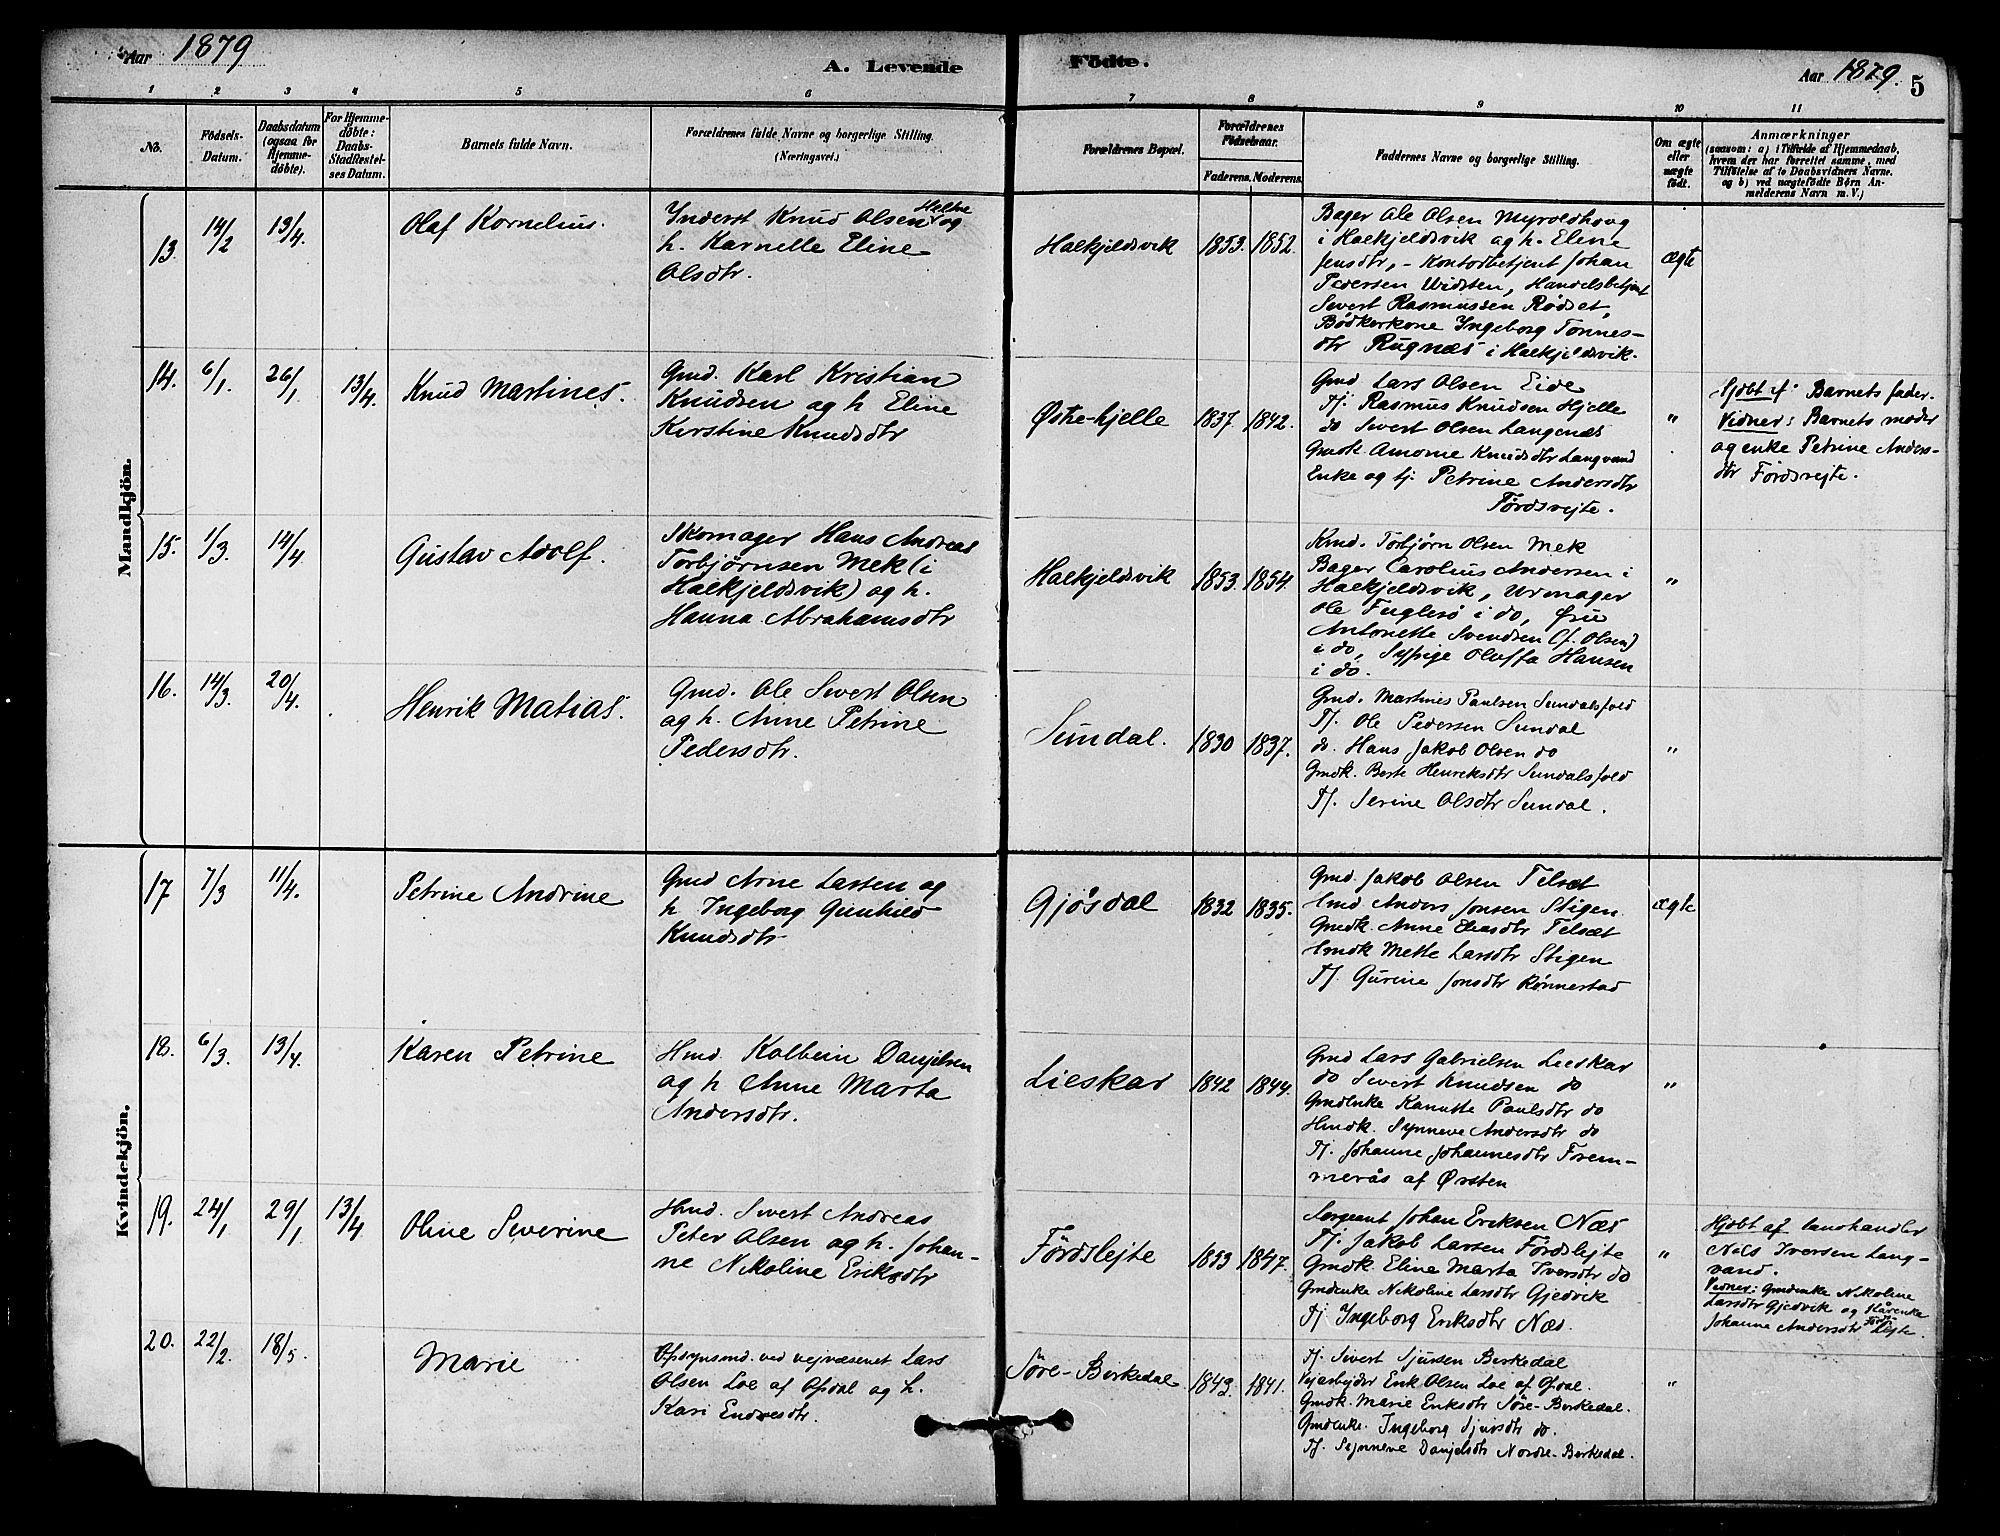 Aar 1879
A. Levende
Födte.
Aar 1879.
5
1 2 3 4 5 6 7 8 9 10 11
No.
Födsels-
Datum.
Daabsdatum
(ogsaa for
Hjemme-
döbte).
For Hjemme-
döbte:
Daabs-
Stadfæstel-
ses Datum.
Barnets fulde Navn.
Forældrenes fulde Navne og borgerlige Stilling.
(Næringsvei.)
Forældrenes Bopæl.
Forældrenes
Födselsaar.
Faderens. Moderens.
Faddernes Navne og borgerlige Stilling.
Om ægte
eller
uægte
födt.
Anmærkninger
(saasom: a) i Tilfælde af Hjemmedaab,
hvem der har forrettet samme, med
Tilföielse af to Daabsvidners Navne.
og b) ved uægtefödte Börn An-
melderens Navn m. V.)
Mandkjön.
13. 14/2 13/4. Olaf Kornelius.
Inderst Knud Olsen Helbe og
h. Karnelle Eline
Olsdtr.
Halkjeldsvik 1853. 1852.
Bager Ole Olsen Myroldhoug
i Halkjeldsvik og h. Eline
Jensdtr, - Kontorbetjent Johan
Pedersen Widsten, Handelsbetjent
Sivert Rasmussen Rødset,
Bødkerkone Ingeborg Tønnes-
dtr Rugnæs i Halkjeldsvik.
ægte
14. 6/1. 26/1 13/4. Knud Martines.
Gmd. Karl Kristian
Knudsen og h Eline
Kirstine Knudsdtr
Østre-hjelle 1837. 1842.
Gmd Lars Olsen Eide
Tj. Rasmus Knudsen Hjelle
do Sivert Olsen Langenæs
Gmdk. Knudsdtr Langvand
Enke og tj. Petrine Andersdtr
Førdsvejte.
"
Hjdbt af: Barnets fader.
Vidner: Barnets moder
og enke Petrine Anders-
dtr Førdsvejte.
15. 1/3. 14/4 Gustav Adolf.
Skomager Hans Andreas
Torbjørnsen Mek (i
Halkjeldsvik) og h.
Hanna Abrahamsdtr
Halkjeldsvik 1853. 1854.
Kmd. Torbjørn Olsen Mek
Bager Carolius Andersen i
Halkjeldsvik, Urmager
Ole Fuglesø i do,
Antonette Svendsen (f. Olsen)
i do, Sypige Oluffa Hansen
i do.
"
16. 14/3. 20/4. Henrik Matias.
Gmd. Ole Sivert Olsen
og h. Anne Petrine
Pedersdtr.
Sundal. 1830 1837.
Gmd. Martines Paulsen Sundalsfold
Tj. Ole Pedersen Sundal
do. Hans Jakob Olsen do
Gmdk. Berte Henriksdtr Sundalsfold
Tj. Serine Olsdtr Sundal.
"
Kvindekjön.
17 7/3 11/4. Petrine Andrine
Gmd Arne Larsen og
h Ingeborg Gunhild
Knudsdtr
Gjøsdal 1832 1835.
Gmd. Jakob Olsen Telsæt
Hmd Anders Jonsen Stigen.
Gmdk. Anne Eliasdtr Telsæt
Hmdk Mette Larsdtr Stigen
Tj. Gurine Jonsdtr Rönnestad
ægte
18. 6/3. 13/4. Karen Petrine
Hmd. Kolbein Danjelsen
og h Anne Marta
Andersdtr.
Lieskar 1842 1844.
Gmd Lars Gabrielsen Lieskar
do Sivert Knudsen do
Gmdenke Kanutte Paulsdtr do
Hmdk. Synneve Andersdtr do
Tj. Johanne Johannesdtr Frem-
merås af Ørsten
"
19. 24/1 29/1. 13/4 Oline Severine
Hmd. Sivert Andreas
Peter Olsen og h. Johan-
ne Nikoline Eriksdtr
Fördslejte 1853 1847.
Sergeant Johan Eriksen Næs
Tj. Jakob Larsen Førdslejte
Gmdk. Eline Marta Iversdtr do
Gmdenke Nikoline Larsdtr Gjedvik
Tj Ingeborg Eriksdtr Næs.
"
Hjdbt af landhandler
Nils Iversen Lang-
vand.
Vidner: Gmdenke Nikoline
Larsdtr Gjedvik og Kårenke
Johanne Andersdtr Førdslejte.
20. 22/2. 18/5 Marie
Opsynsmd. ved vejvæsenet Lars
Olsen Loe af Opdal og h.
Kari Endresdtr.
Söre-Berkedal 1843. 1841.
Tj. Sivert Sjursen Berkedal
Vejarbejder Erik Olsen Loe af Opdal.
Gmdk. Marie Eriksdtr Söre-Berkedal.
Gmdenke. Ingeborg Sjursdtr do.
Tj. Synneve Danjelsdtr Nordre-Berkedal.
"